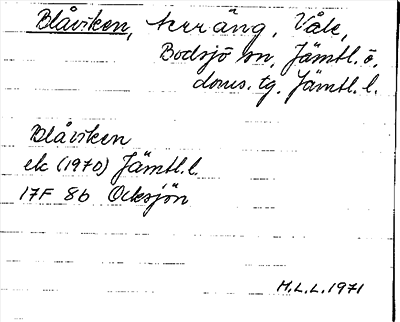 Blåviken, terräng, Våle,
Bodsjö sn, Jämtl. ö.
doms. tg. Jämtl. l.
Blåviken
ek (1970) Jämtl. l.
17F 8b Ocksjön
M.L.L. 1971